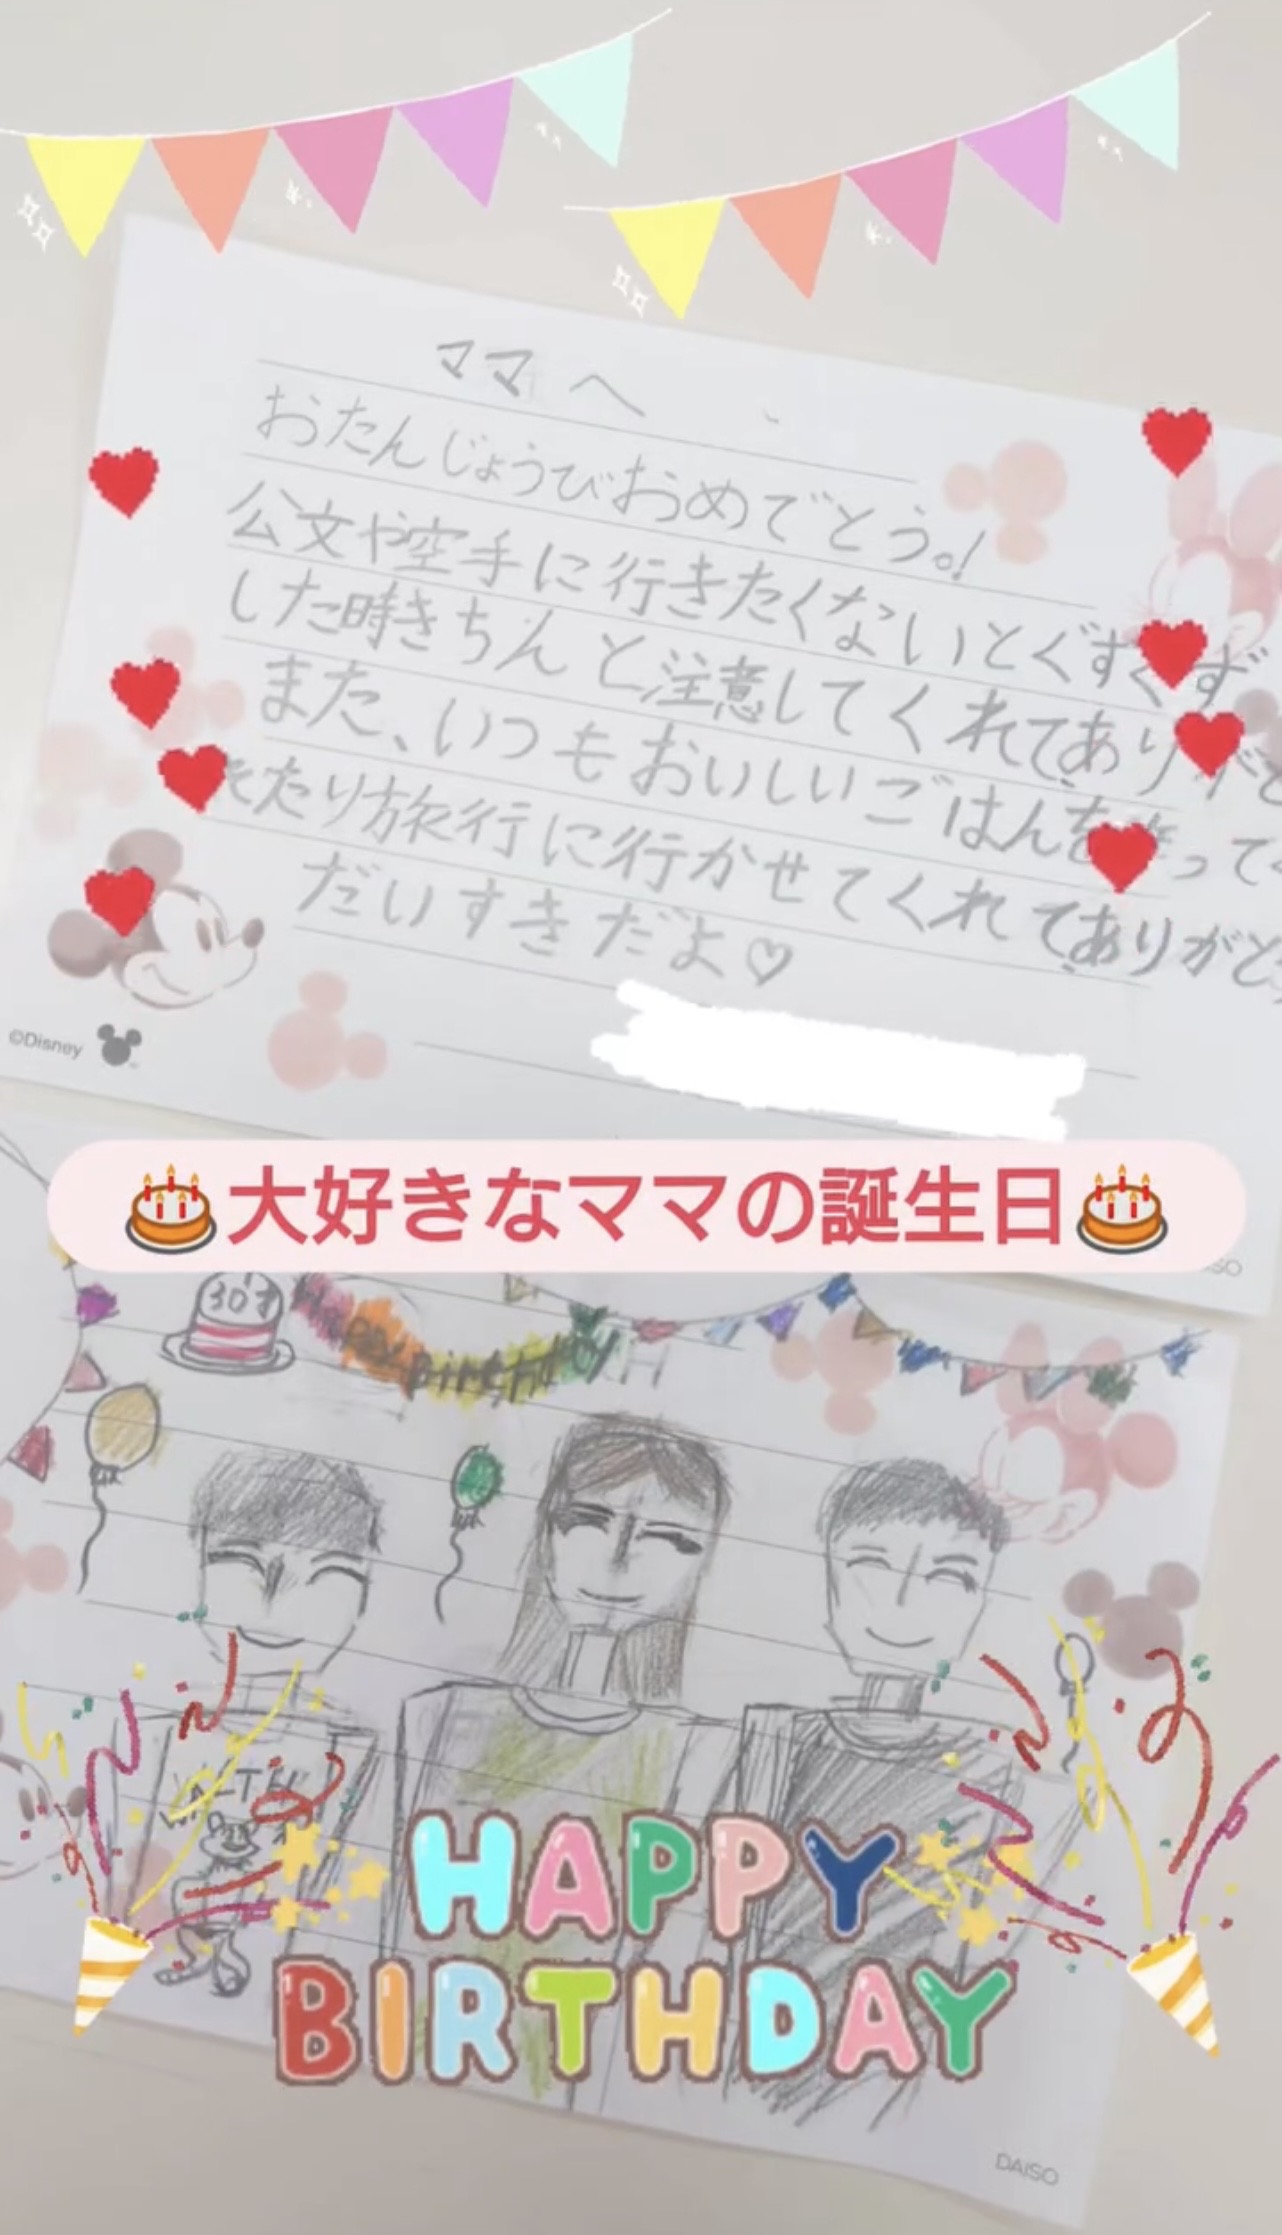 ママへ
おたんじょうびおめでとう。!
公文や空手に行きたくないとぐすぐず
した時きちんと注意してくれてありがと
また、いつもおいしいごはんを作って
たり旅行に行かせてくれてありがと
だいすきだよ♡
©Disney
🎂大好きなママの誕生日🎂
30才
Happy BirthDAY
HAPPY
BIRTHDAY
DAISO